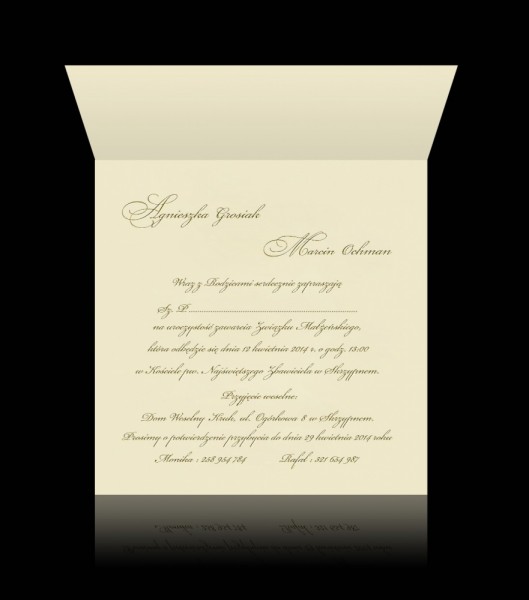 Agnieszka Grosiak
Marcin Ochman
Wraz z Rodzicami serdecznie zapraszają
Sz. P.
na uroczystość zawarcia Związku Małżeńskiego,
która odbędzie się dnia 12 kwietnia 2014 r. o godz. 15:00
w Kościele pw. Najświętszego Zbawiciela w Skrzypnem.
Przyjęcie weselne:
Dom Weselny Kruk, ul. Ogórkowa 8 w Skrzypnem.
Prosimy o potwierdzenie przybycia do dnia 29 kwietnia 2014 roku
Monika : 258 954 784 Rafał : 321 654 987